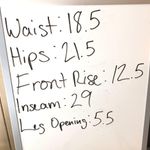 Waist: 18.5
Hips: 21.5
Front Rise: 12.5
Inseam: 29
Leg Opening: 5.5